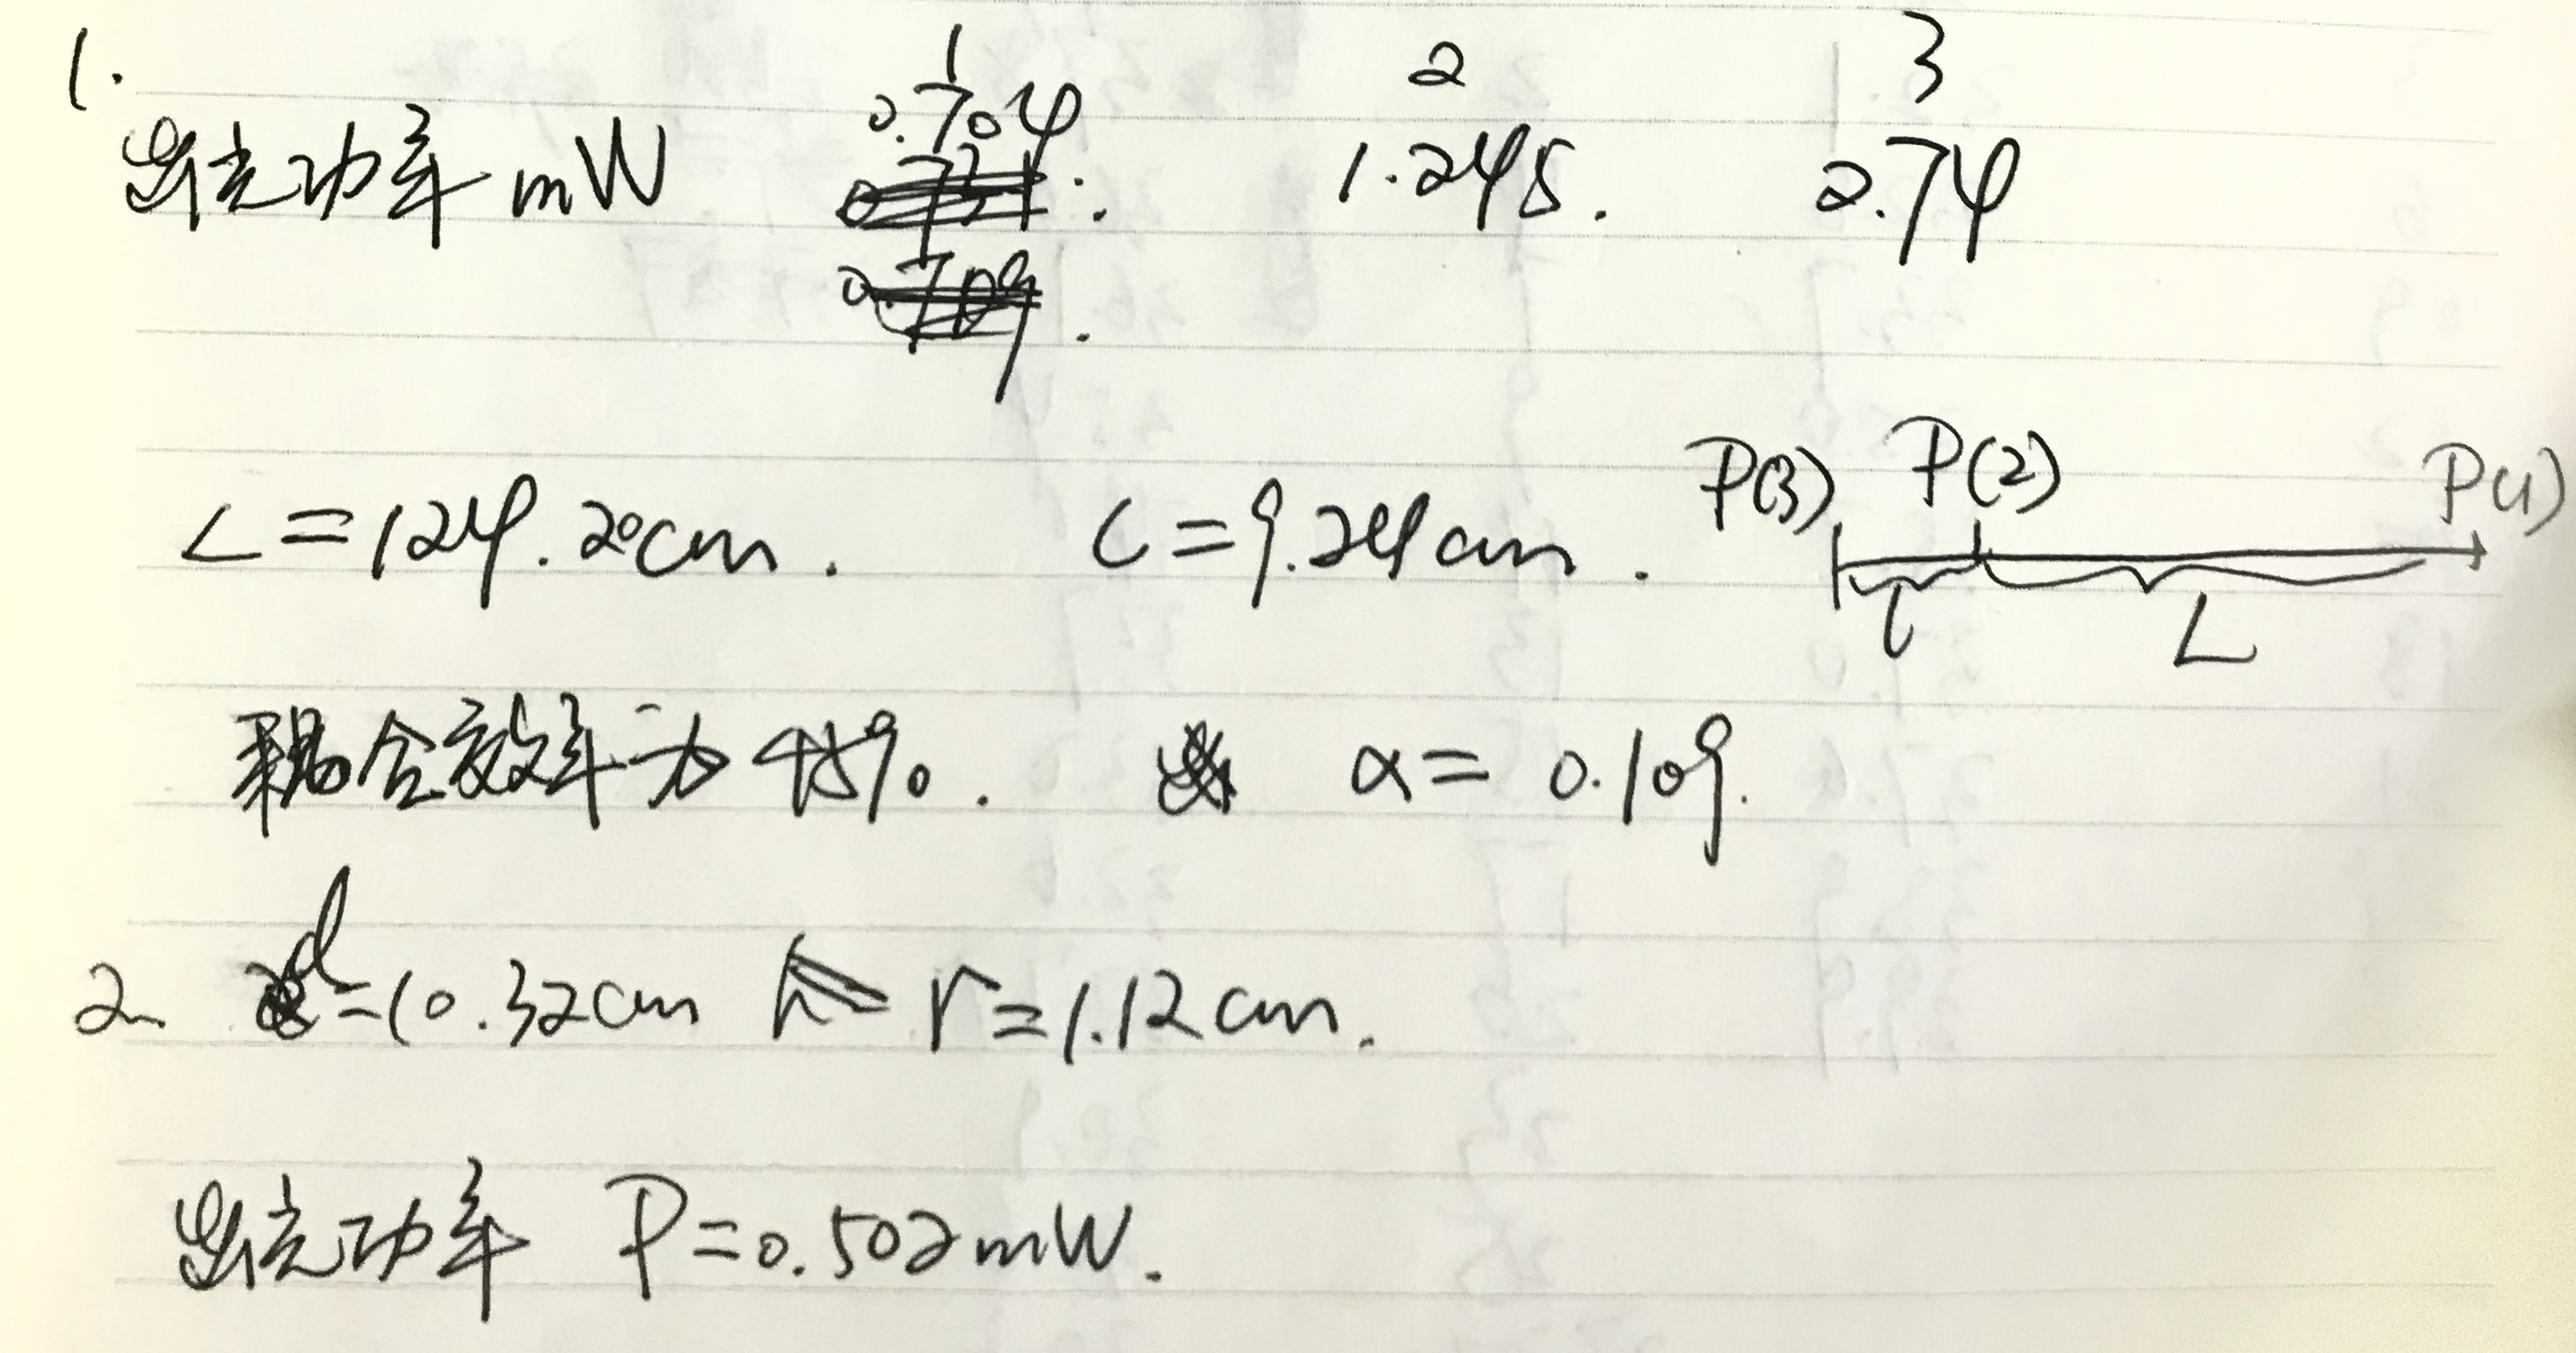 1. 1 2 3
出光功率 mW 0.704 1.245. 2.74
L=124.20cm. l=9.24cm. P(3) P(2) P(1)
l L
耦合效率为 45%. α= 0.109.
2. d=10.32cm r=1.12cm.
出光功率 P=0.502mW.